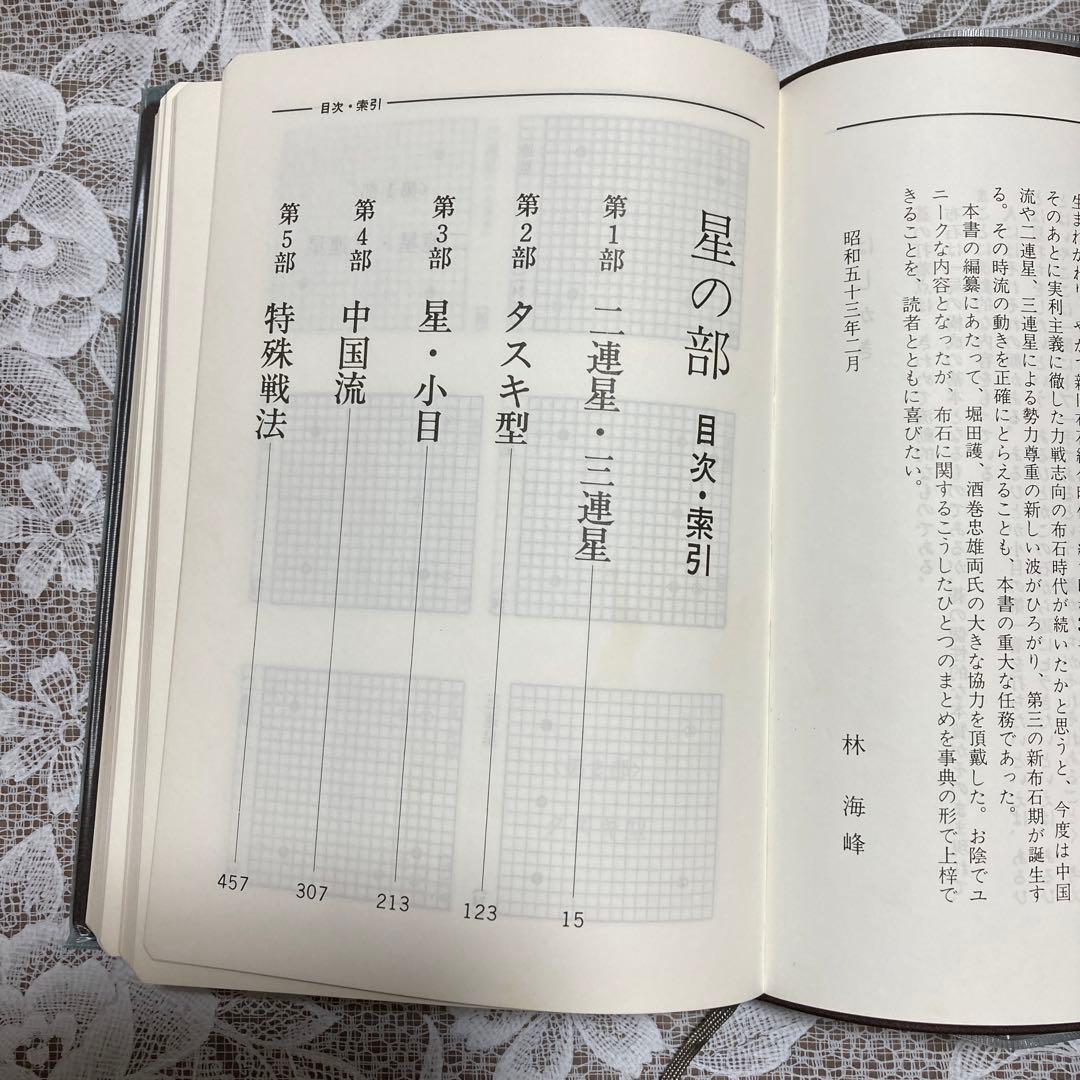 そのあとに実利主義に徹した力戦志向の布石時代が続いたかと思うと、今度は中国
流や二連星、三連星による勢力尊重の新しい波がひろがり、第三の新布石期が誕生す
る。その時流の動きを正確にとらえることも、本書の重大な任務であった。
本書の編纂にあたって、堀田護、酒巻忠雄両氏の大きな協力を頂戴した。お陰でユ
ニークな内容となったが、布石に関するこうしたひとつのまとめを事典の形で上梓で
きることを、読者とともに喜びたい。
昭和五十三年二月
林海峰
目次・索引
星の部 目次・索引
第1部 二連星・三連星 15
第2部 タスキ型 123
第3部 星・小目 213
第4部 中国流 307
第5部 特殊戦法 457